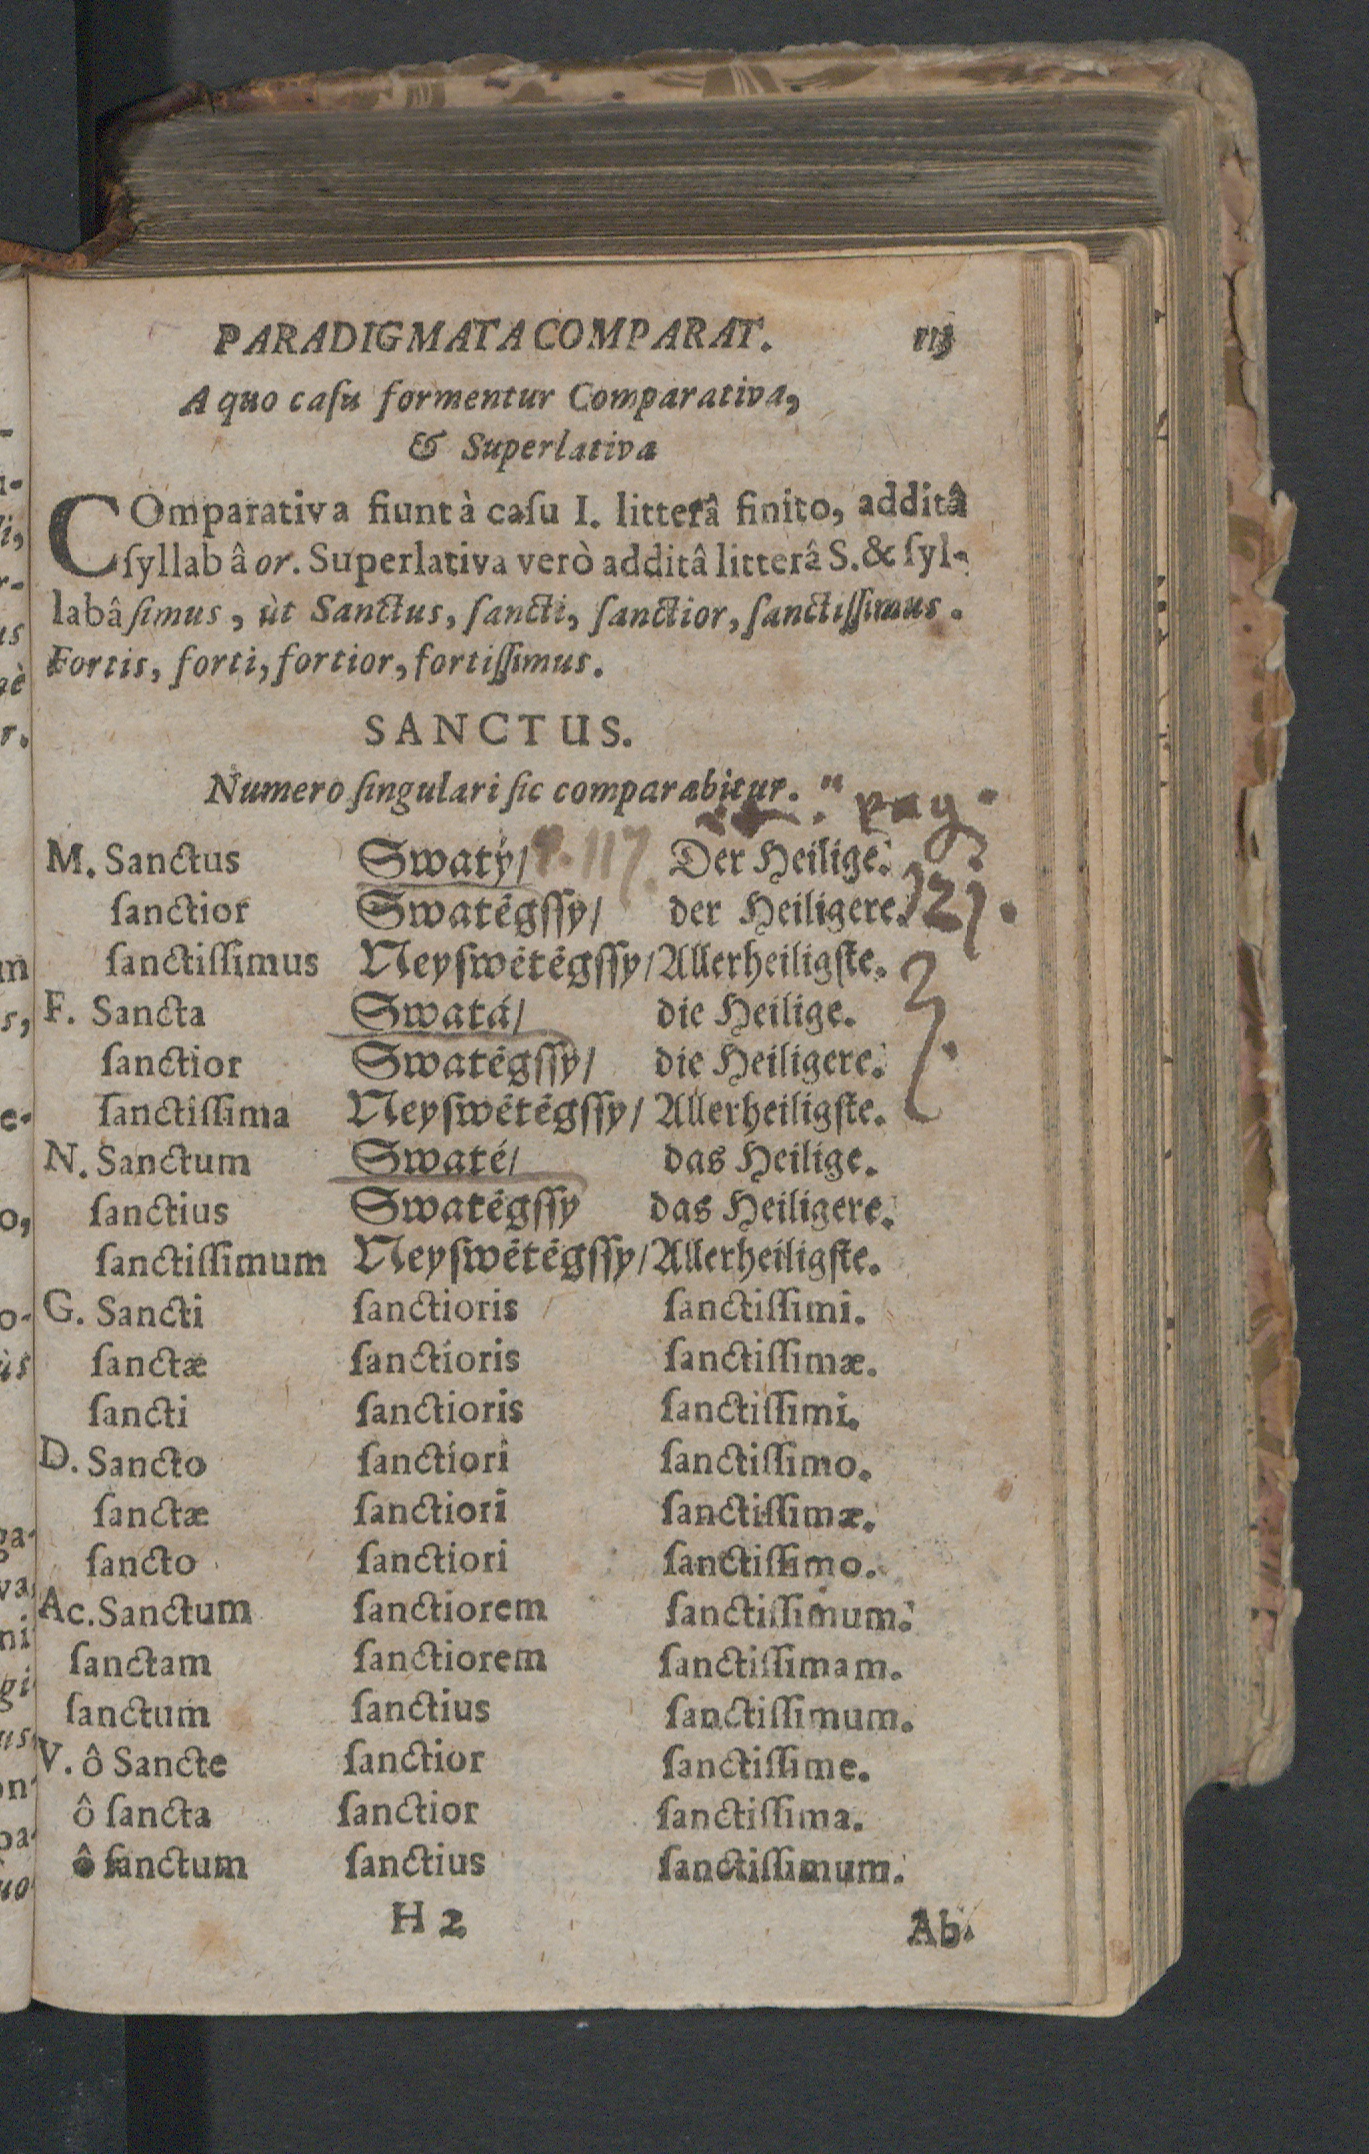 PARADIGMATA COMPARAT. 115
A quo caſu formentur Comparativa,
& Superlativa
COmparativa fiunt à caſu I. litterâ finito, additâ
ſyllabâ or. Superlativa verò additâ litterâ S. & ſyl-
labâ ſimus, ùt Sanctus, ſancti, ſanctior, ſanctiſſimus.
Fortis, forti, fortior, fortiſſimus.
SANCTUS.
Numero ſingulari ſic comparabitur. " pag.
M. Sanctus Swatý/ P. 117. Der Heilige.
ſanctior Swatěgſſy/ der Heiligere. 121.
ſanctiſſimus Neyſwětěgſſy/ Allerheiligſte.
F. Sancta Swatá/ die Heilige.
ſanctior Swatěgſſy/ die Heiligere.
ſanctiſſima Neyſwětěgſſy/ Allerheiligſte.
N. Sanctum Swaté/ das Heilige.
ſanctius Swatěgſſy das Heiligere.
ſanctiſſimum Neyſwětěgſſy/ Allerheiligſte.
G. Sancti ſanctioris ſanctiſſimi.
ſanctæ ſanctioris ſanctiſſimæ.
ſancti ſanctioris ſanctiſſimi.
D. Sancto ſanctiori ſanctiſſimo.
ſanctæ ſanctiori ſanctiſſimæ.
ſancto ſanctiori ſanctiſſimo.
Ac. Sanctum ſanctiorem ſanctiſſimum.
ſanctam ſanctiorem ſanctiſſimam.
ſanctum ſanctius ſanctiſſimum.
V. ô Sancte ſanctior ſanctiſſime.
ô ſancta ſanctior ſanctiſſima.
ô ſanctum ſanctius ſanctiſſimum.
H 2 Ab.